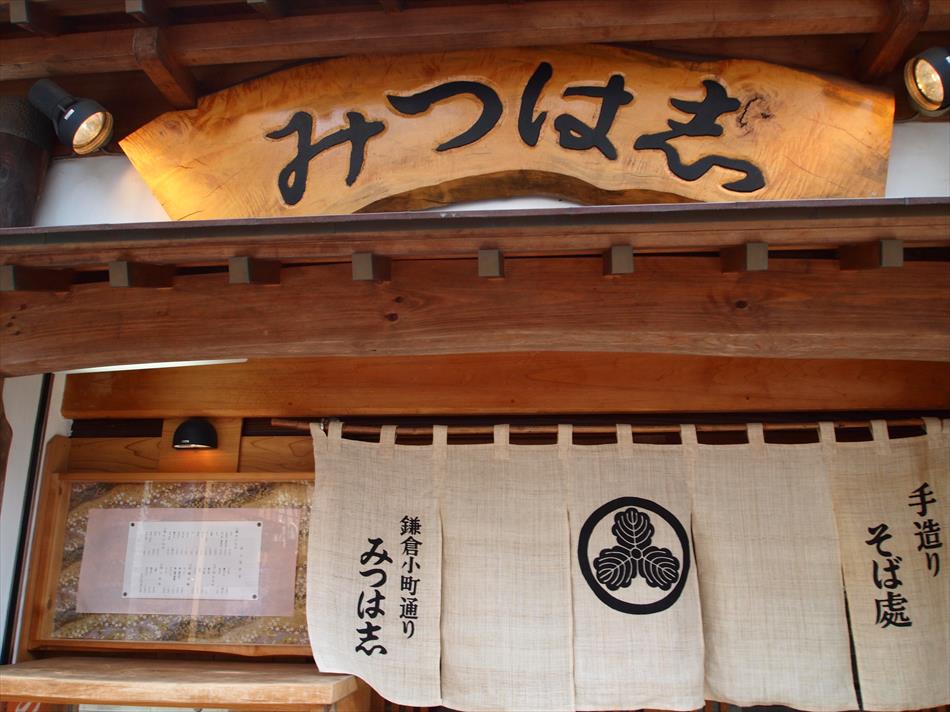 みつは志
手造り
そば處
鎌倉小町通り
みつは志